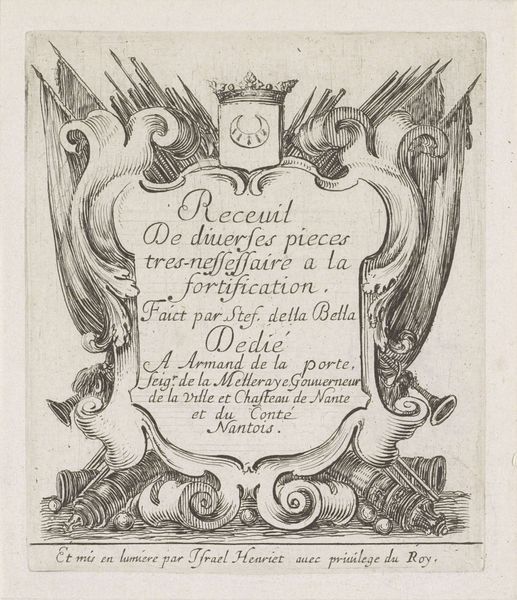 Receuil
De diuerses pieces
tres-nessessaire a la
fortification.
Faict par Stef. della Bella
Dedié
A Armand de la porte,
seigr. de la Melleraye, Gouuerneur
de la ville et Chasteau de Nante
et du Conté
Nantois.
Et mis en lumiere par Israel Henriet auec priuilege du Roy.